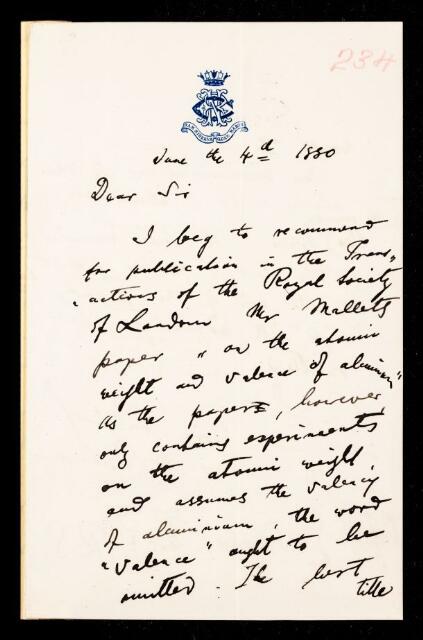 234
June the 4d 1880
Dear Sir
I beg to recommend
for publication in the Trans-
actions of the Royal Society
of London Mr Mallets
paper "on the atomic
weight and valence of aluminium"
As the paper, however,
only contains experiments
on the atomic weight,
and assumes the valency
of aluminium, the word
"valence" ought to be
omitted. The best
title